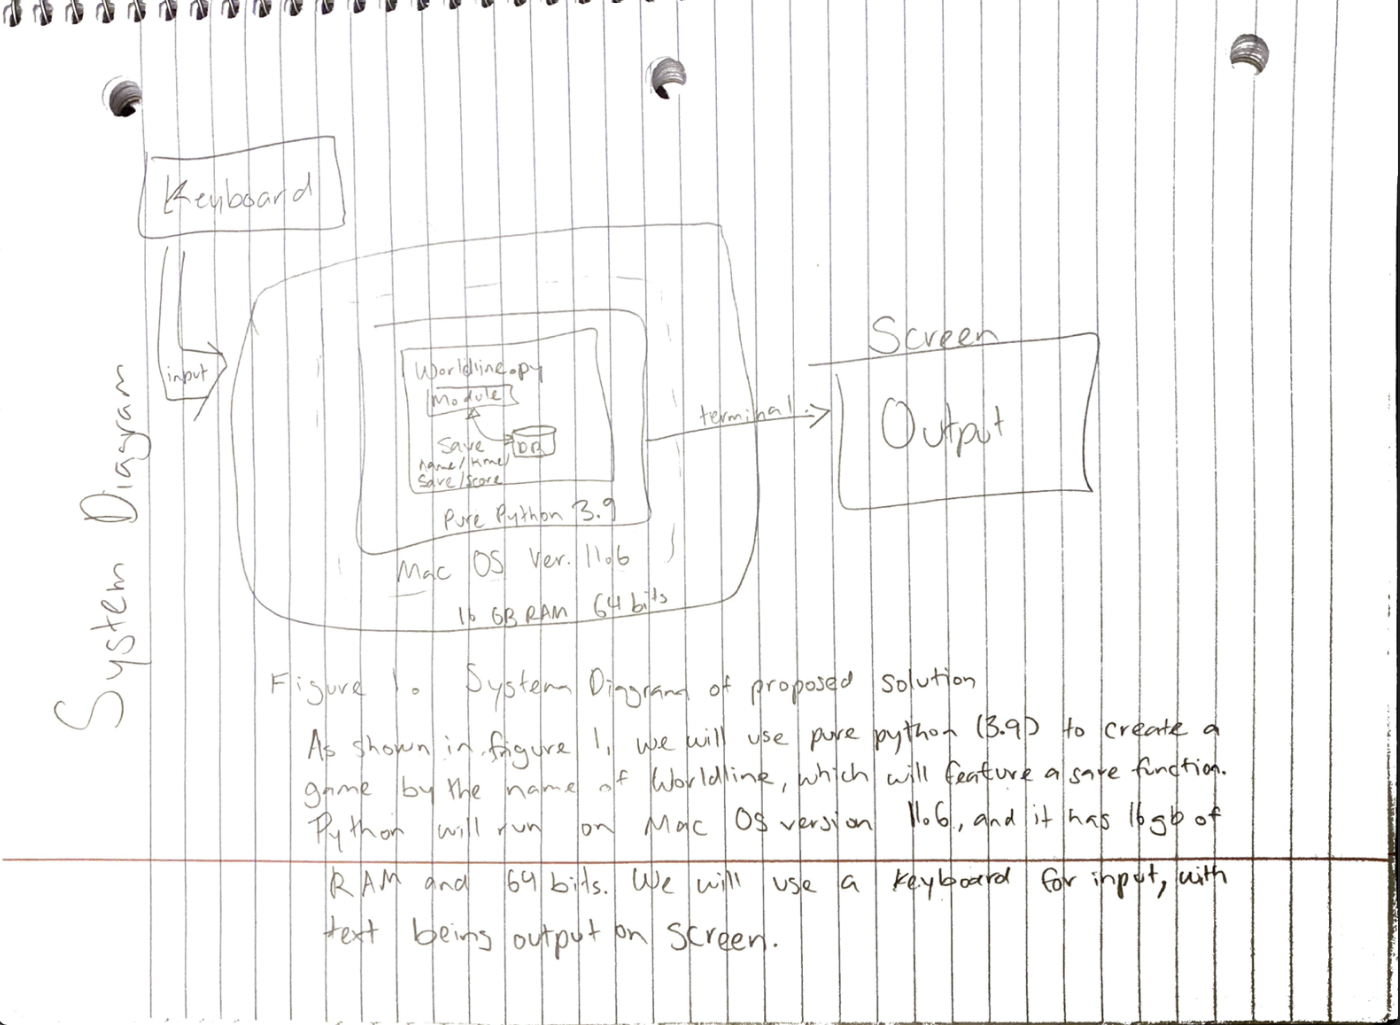 System Diagram
Keyboard
input
Worldline.py
Module
Save
DB
name/time/
Save/score
Pure Python 3.9
Mac OS Ver. 11.6
16 GB RAM 64 bits
terminal.
Screen
Output
Figure 1. System Diagram of proposed solution
As shown in figure 1, we will use pure python (3.9) to create a
game by the name of Worldline, which will feature a save function.
Python will run on Mac OS version 11.6, and it has 16gb of
RAM and 64 bits. We will use a keyboard for input, with
text being output on screen.